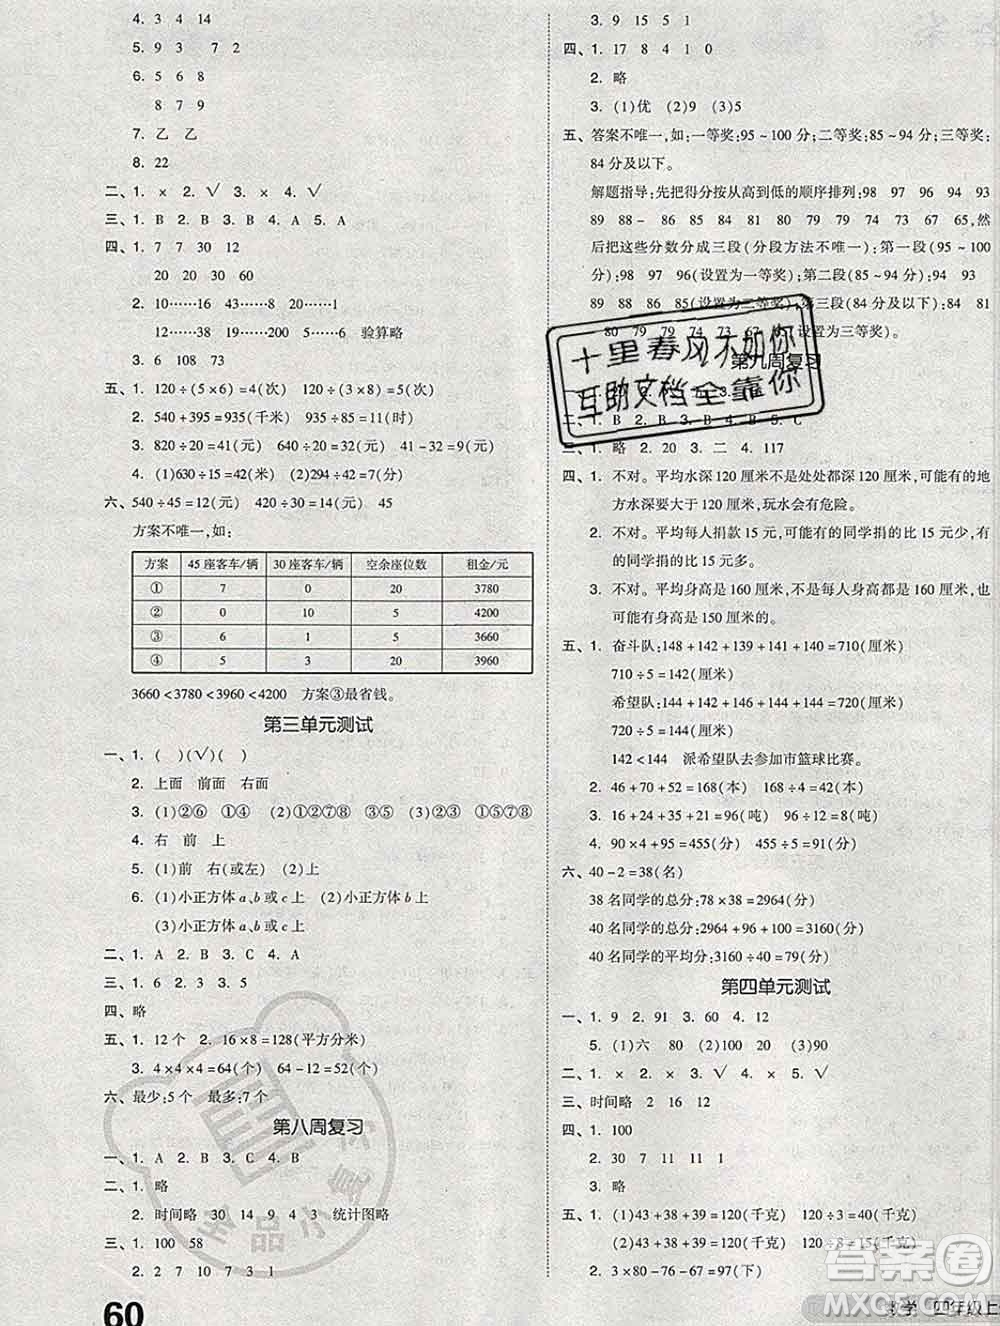 4. 3 4 14
5. 9 3 7 2
6. 5 6 8
8 7 9
7. 乙 乙
8. 22
二、1. × 2. √ 3. × 4. √
三、1. B 2. B 3. B 4. A 5. A
四、1. 7 7 30 12
20 20 30 60
2. 10……16 43……8 20……1
12……36 19……20 30……6 验算略
3. 6 108 73
五、1. 120÷(5×6)=4(次) 120÷(5×8)=3(次)
2. 540+395=935(千米) 935÷85=11(时)
3. 820÷20=41(元) 640÷20=32(元) 41-32=9(元)
4. (1)630÷15=42(米) (2)294÷42=7(分)
六、540÷45=12(元) 420÷30=14(元) 45
方案不唯一,如:
方案 45座客车/辆 30座客车/辆 空余座位数 租金/元
① 7 0 20 3780
② 0 10 5 4200
③ 6 1 5 3660
④ 5 3 20 3960
3660<3780<3960<4200 方案③最省钱。
第三单元测试
一、1. ( )(√)( )
2. 上面 前面 右面
3. (1)②⑥ ①④ (2)①②⑦⑧ ①④ (3)②③ ①⑤⑦⑧
4. 右 前 上
5. (1)前 右(或左) (2)上
6. (1)小正方体a、b或c上 (2)小正方体b上
(3)小正方体a、b或c上
二、1. A 2. B 3. C 4. A
三、1. 6 2. 3 3. 5
四、略
五、1. 12个 2. 16×8=128(平方分米)
3. 4×4×4=64(个) 64-12=52(个)
六、最少:5个 最多:7个
第八周复习
一、1. A 2. B 3. C 4. B
二、1. 略
2. 时间略 9 14 9 4 3 统计图略
三、1. 100 58
2. 2 7 10 7 3 1
60
3. 9 15 5 1
四、1. 17 8 4 1 0
2. 略
3. (1)优 (2)9 (3)5
五、答案不唯一,如:一等奖:95~100分;二等奖:85~94分;三等奖:
84分及以下。
解题指导:先把得分按从高到低的顺序排列:98 97 96 94 93
89 88 86 85 84 81 80 79 79 74 73 67 65,然
后把这些分数分成三段(分段方法不唯一):第一段(95~100
分):98 97 96(设置为一等奖);第二段(85~94分):94 93
89 88 86 85(设置为二等奖);第三段(84分及以下):84 81
80 79 79 74 73 67 65(设置为三等奖)。
十里春风不如你
互助文档全靠你
第九周复习
二、1. B 2. B 3. B 4. B 5. C
三、1. 略 2. 20 3. 二 4. 117
四、1. 不对。平均水深120厘米不是处处都深120厘米,可能有的地
方水深要大于120厘米,玩水会有危险。
2. 不对。平均每人捐款15元,可能有的同学捐的比15元少,有
的同学捐的比15元多。
3. 不对。平均身高是160厘米,不是每人身高都是160厘米,也
可能有身高是150厘米的。
五、1. 奋斗队:148+142+139+141+140=710(厘米)
710÷5=142(厘米)
希望队:144+142+146+144+144=720(厘米)
720÷5=144(厘米)
142<144 派希望队去参加市篮球比赛。
2. 46+48+42+32=168(本) 168÷4=42(本)
3. 16+24+35+21=96(吨) 96÷12=8(吨)
4. 90×4+95=455(分) 455÷5=91(分)
六、40-2=38(名)
38名同学的总分:78×38=2964(分)
40名同学的总分:2964+96+100=3160(分)
40名同学的平均分:3160÷40=79(分)
第四单元测试
一、1. 9 2. 91 3. 60 4. 12
5. (1)六 80 (2)100 20 (3)90
二、1. × 2. × 3. √ 4. × 5. √
三、时间略 2 16 12
四、1. 100
2. 30 7 11 11 1
3. 略
五、1. (1)43+38+39=120(千克) 120÷3=40(千克)
(2)43+38+39=120(千克) 120÷8=15(千克)
2. 3×80-76-67=
数学 四年级上
答案圈
全品小复习